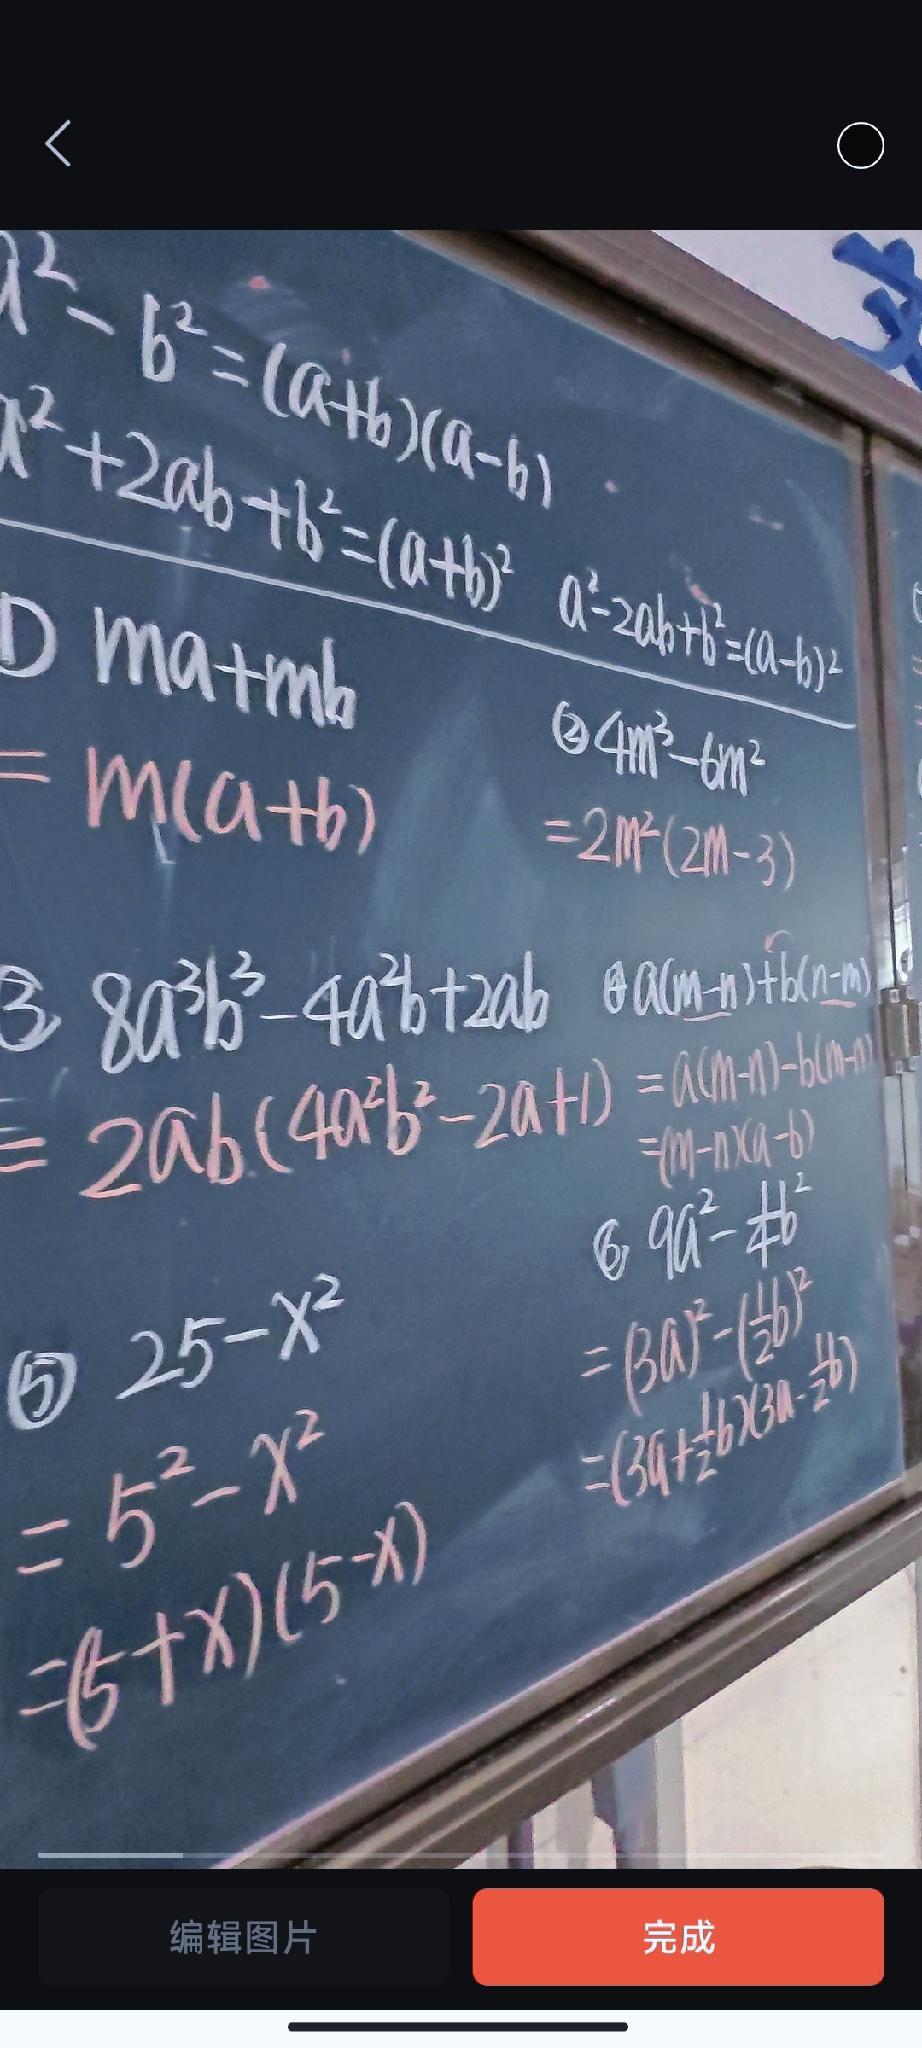 a² - b² = (a+b)(a-b)
a² + 2ab + b² = (a+b)²
a² - 2ab + b² = (a-b)²
① ma+mb
= m(a+b)
② 4m³-6m²
= 2m²(2m-3)
③ 8a³b³-4a²b+2ab
= 2ab(4a²b²-2a+1)
④ a(m-n)+b(n-m)
= a(m-n)-b(m-n)
= (m-n)(a-b)
⑤ 25-x²
= 5²-x²
= (5+x)(5-x)
⑥ 9a²-¼b²
= (3a)²-(½b)²
= (3a+½b)(3a-½b)
编辑图片
完成